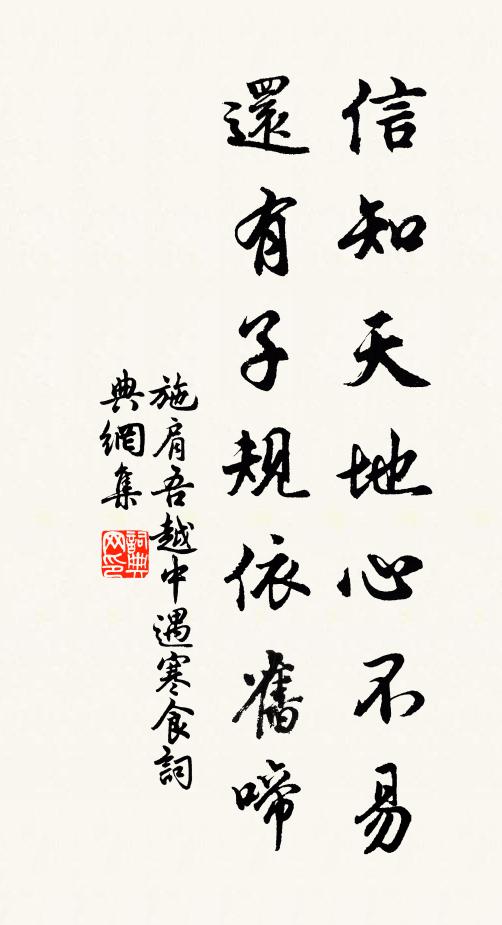 信知天地心不易
還有子規依舊啼
施肩吾越中遇寒食詞
典網集
詞典
网印